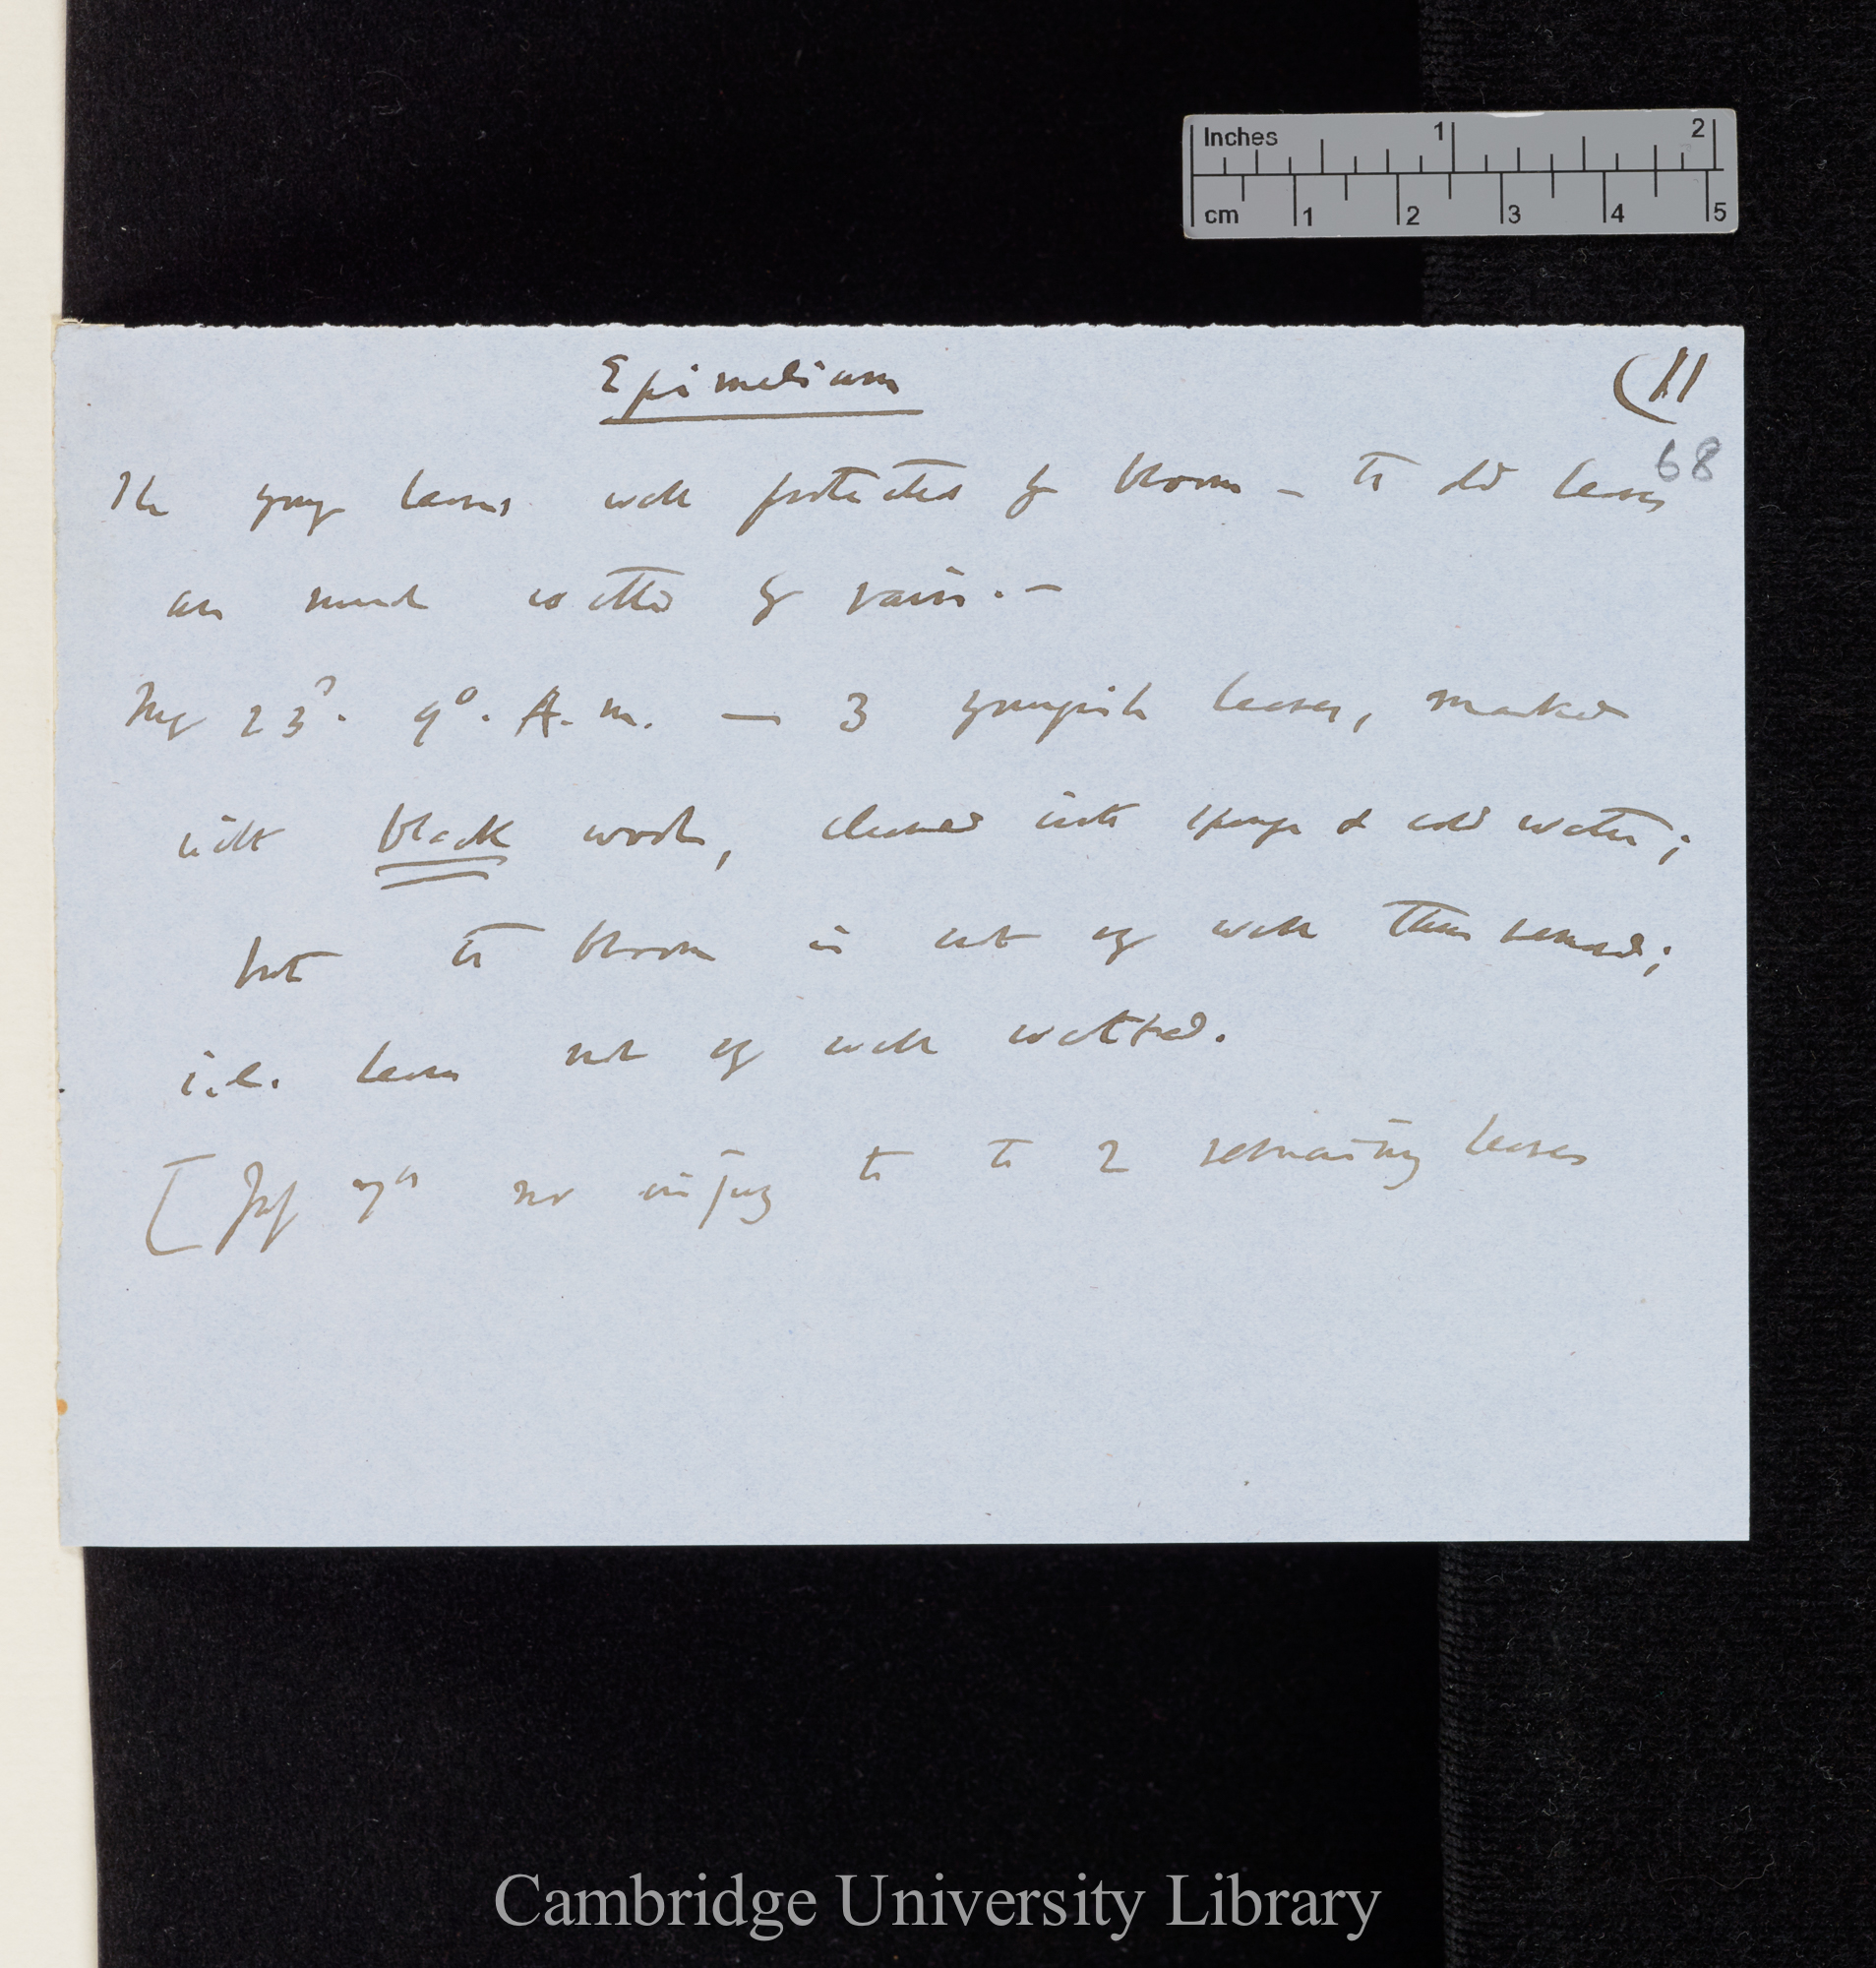 Inches 1 2
cm 1 2 3 4 5
Epimedium
(11
68
The young leaves well protected by bloom – the old leaves
are much wetted by rain. –
23d. 9o. A. m. — 3 youngish leaves, marked
with black wool, cleaned with sponge & cold water;
but the bloom is not very well thus removed;
i.e. leaves not very well wetted.
[ July no injury to the 2 remaining leaves
Cambridge University Library